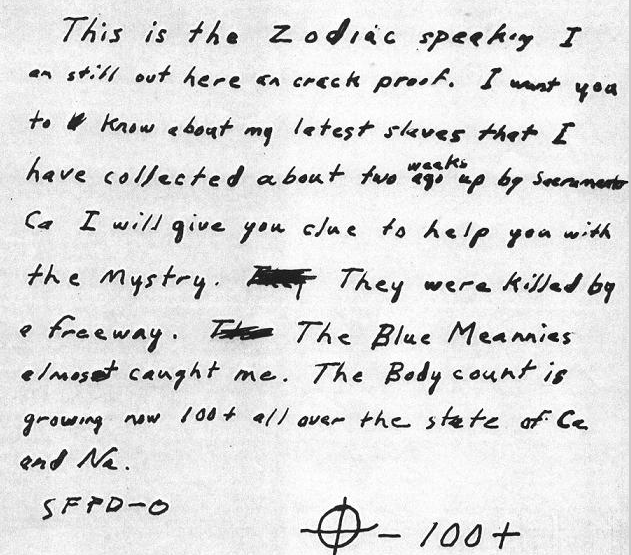 This is the Zodiac speaking I
am still out here an crack proof. I want you
to know about my latest slaves that I
have collected about two weeks ago up by Sacramento
Ca I will give you clue to help you with
the Mystry. They were killed by
a freeway. The Blue Meannies
almost caught me. The Body count is
growing now 100+ all over the state of Ca
and Na.
SFPD-0
- 100+